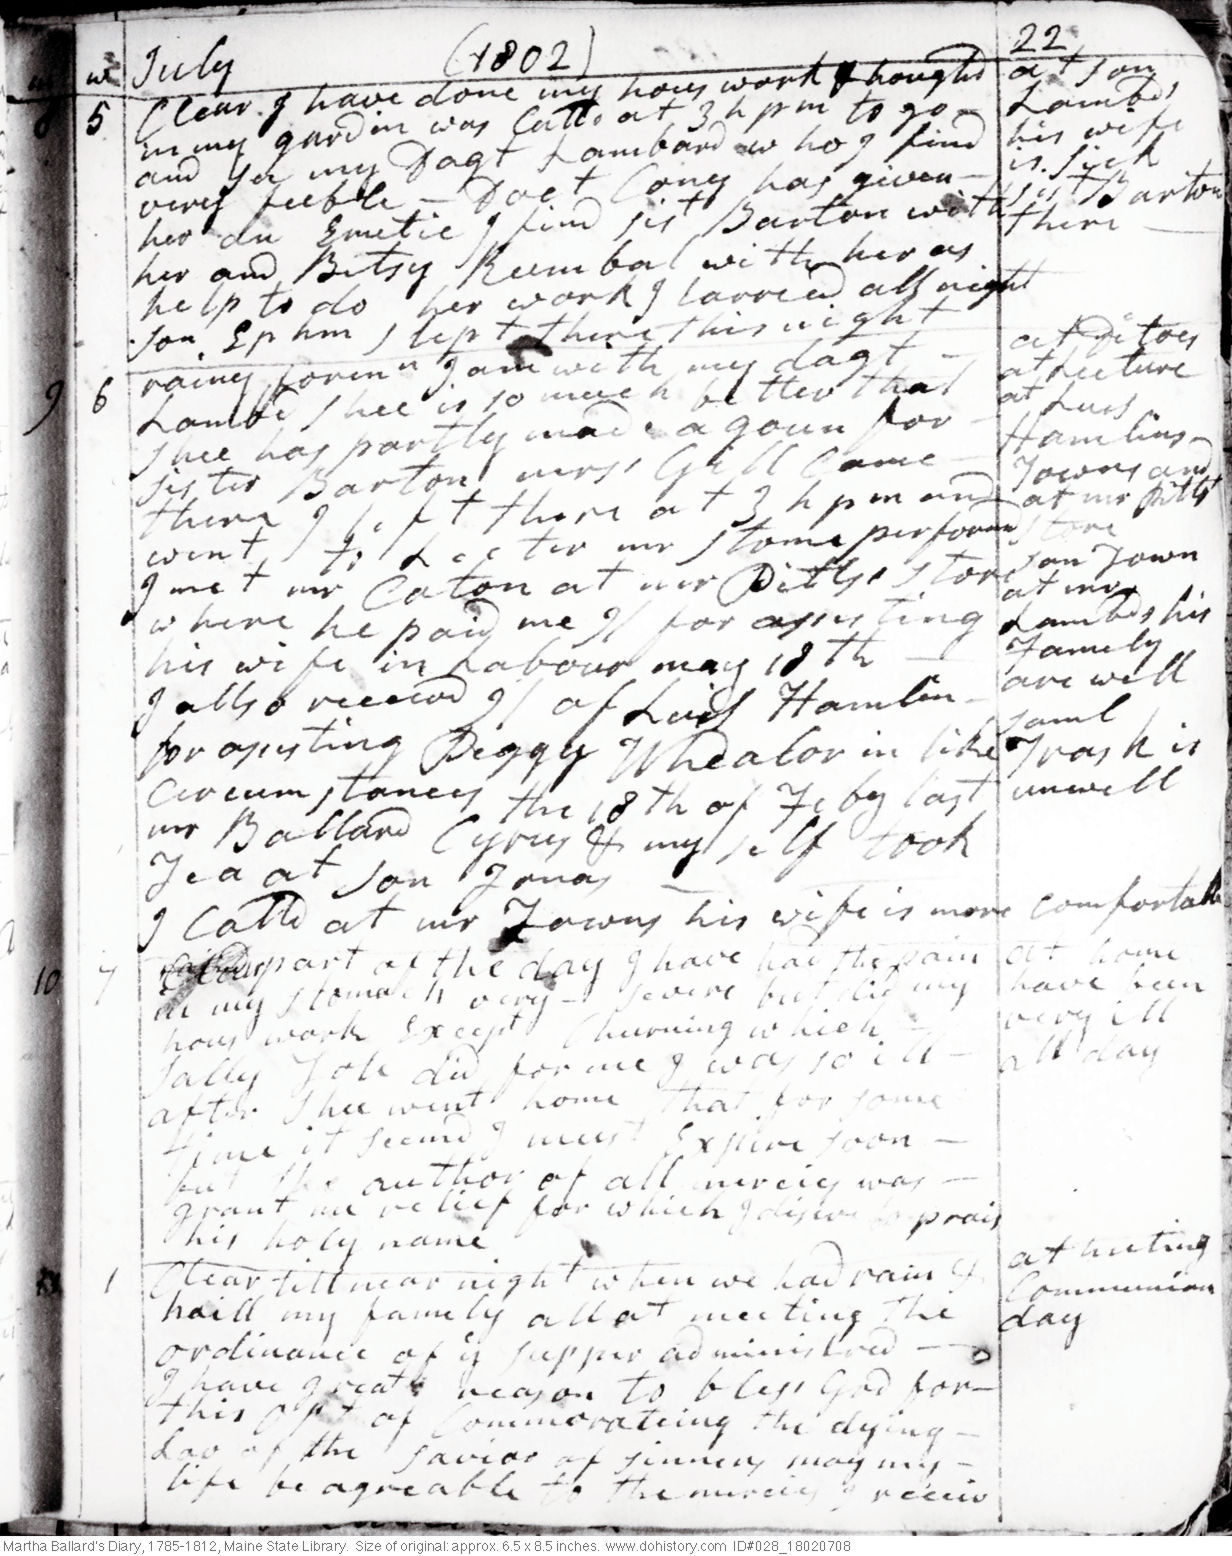 m w July (1802) 22
8 5 Clear I have done my hous work & hough'd
in my gardin was Calld at 3 h pm to go
and see my Dagt Lambard who I find
very feeble - Doct Cony has given -
her an Emetic I find sist Barton with
her and Betsy Kembal with her as
help to do her work I tarried all night
son Ephm slept there this night
at son
Lambds
his wife
is sick
sist Barton
there
9 6 rainy foren n I am with my dagt -
Lambd shee is so much better that
shee has partly made a goun for -
sister Barton mrss Gill Came -
there I left there at 3 h pm and
went to Lecter mr Stome performd
I met mr Caton at mr Pitts's store
where he paid me 9/ for assisting
his wife in Labour may 18th
I allso receivd 9/ of Luis Hamlin -
for assisting Peggy Whealor in like
Circumstances the 18th of Feby last
mr Ballard Cyrus & my self took
Tea at son Jonas
I Calld at mr Towns his wife is more comfortable
at Pitses
at Lecture
at Luis
Hamlins -
Towns and
at mr Pitts's
store
son Town
at mr
Lambds his
Famely
are well
saml
Trask is
unwell
10 7 part of the day I have had the pain
in my stomach very - severe but did my
hous work Except Churning which -
sally did for me I was so ill -
after shee went home that for some
time it seemd I must Expire soon -
but the author of all mercies was -
grant me relief for which I disire to prais
his holy name
at home
have been
very ill
all day
11 1 Clear till near night when we had rain &
haill my famely all at meeting the
ordinance of ye supper administred -
I have great reason to bless God for -
this opt of Commorateing the dying -
Lov of the savior of sinners may my -
life be agreable to the mercies I receiv
at meeting
Communion
day
Martha Ballard's Diary, 1785-1812, Maine State Library. Size of original: approx. 6.5 x 8.5 inches. www.dohistory.com ID#028_18020708